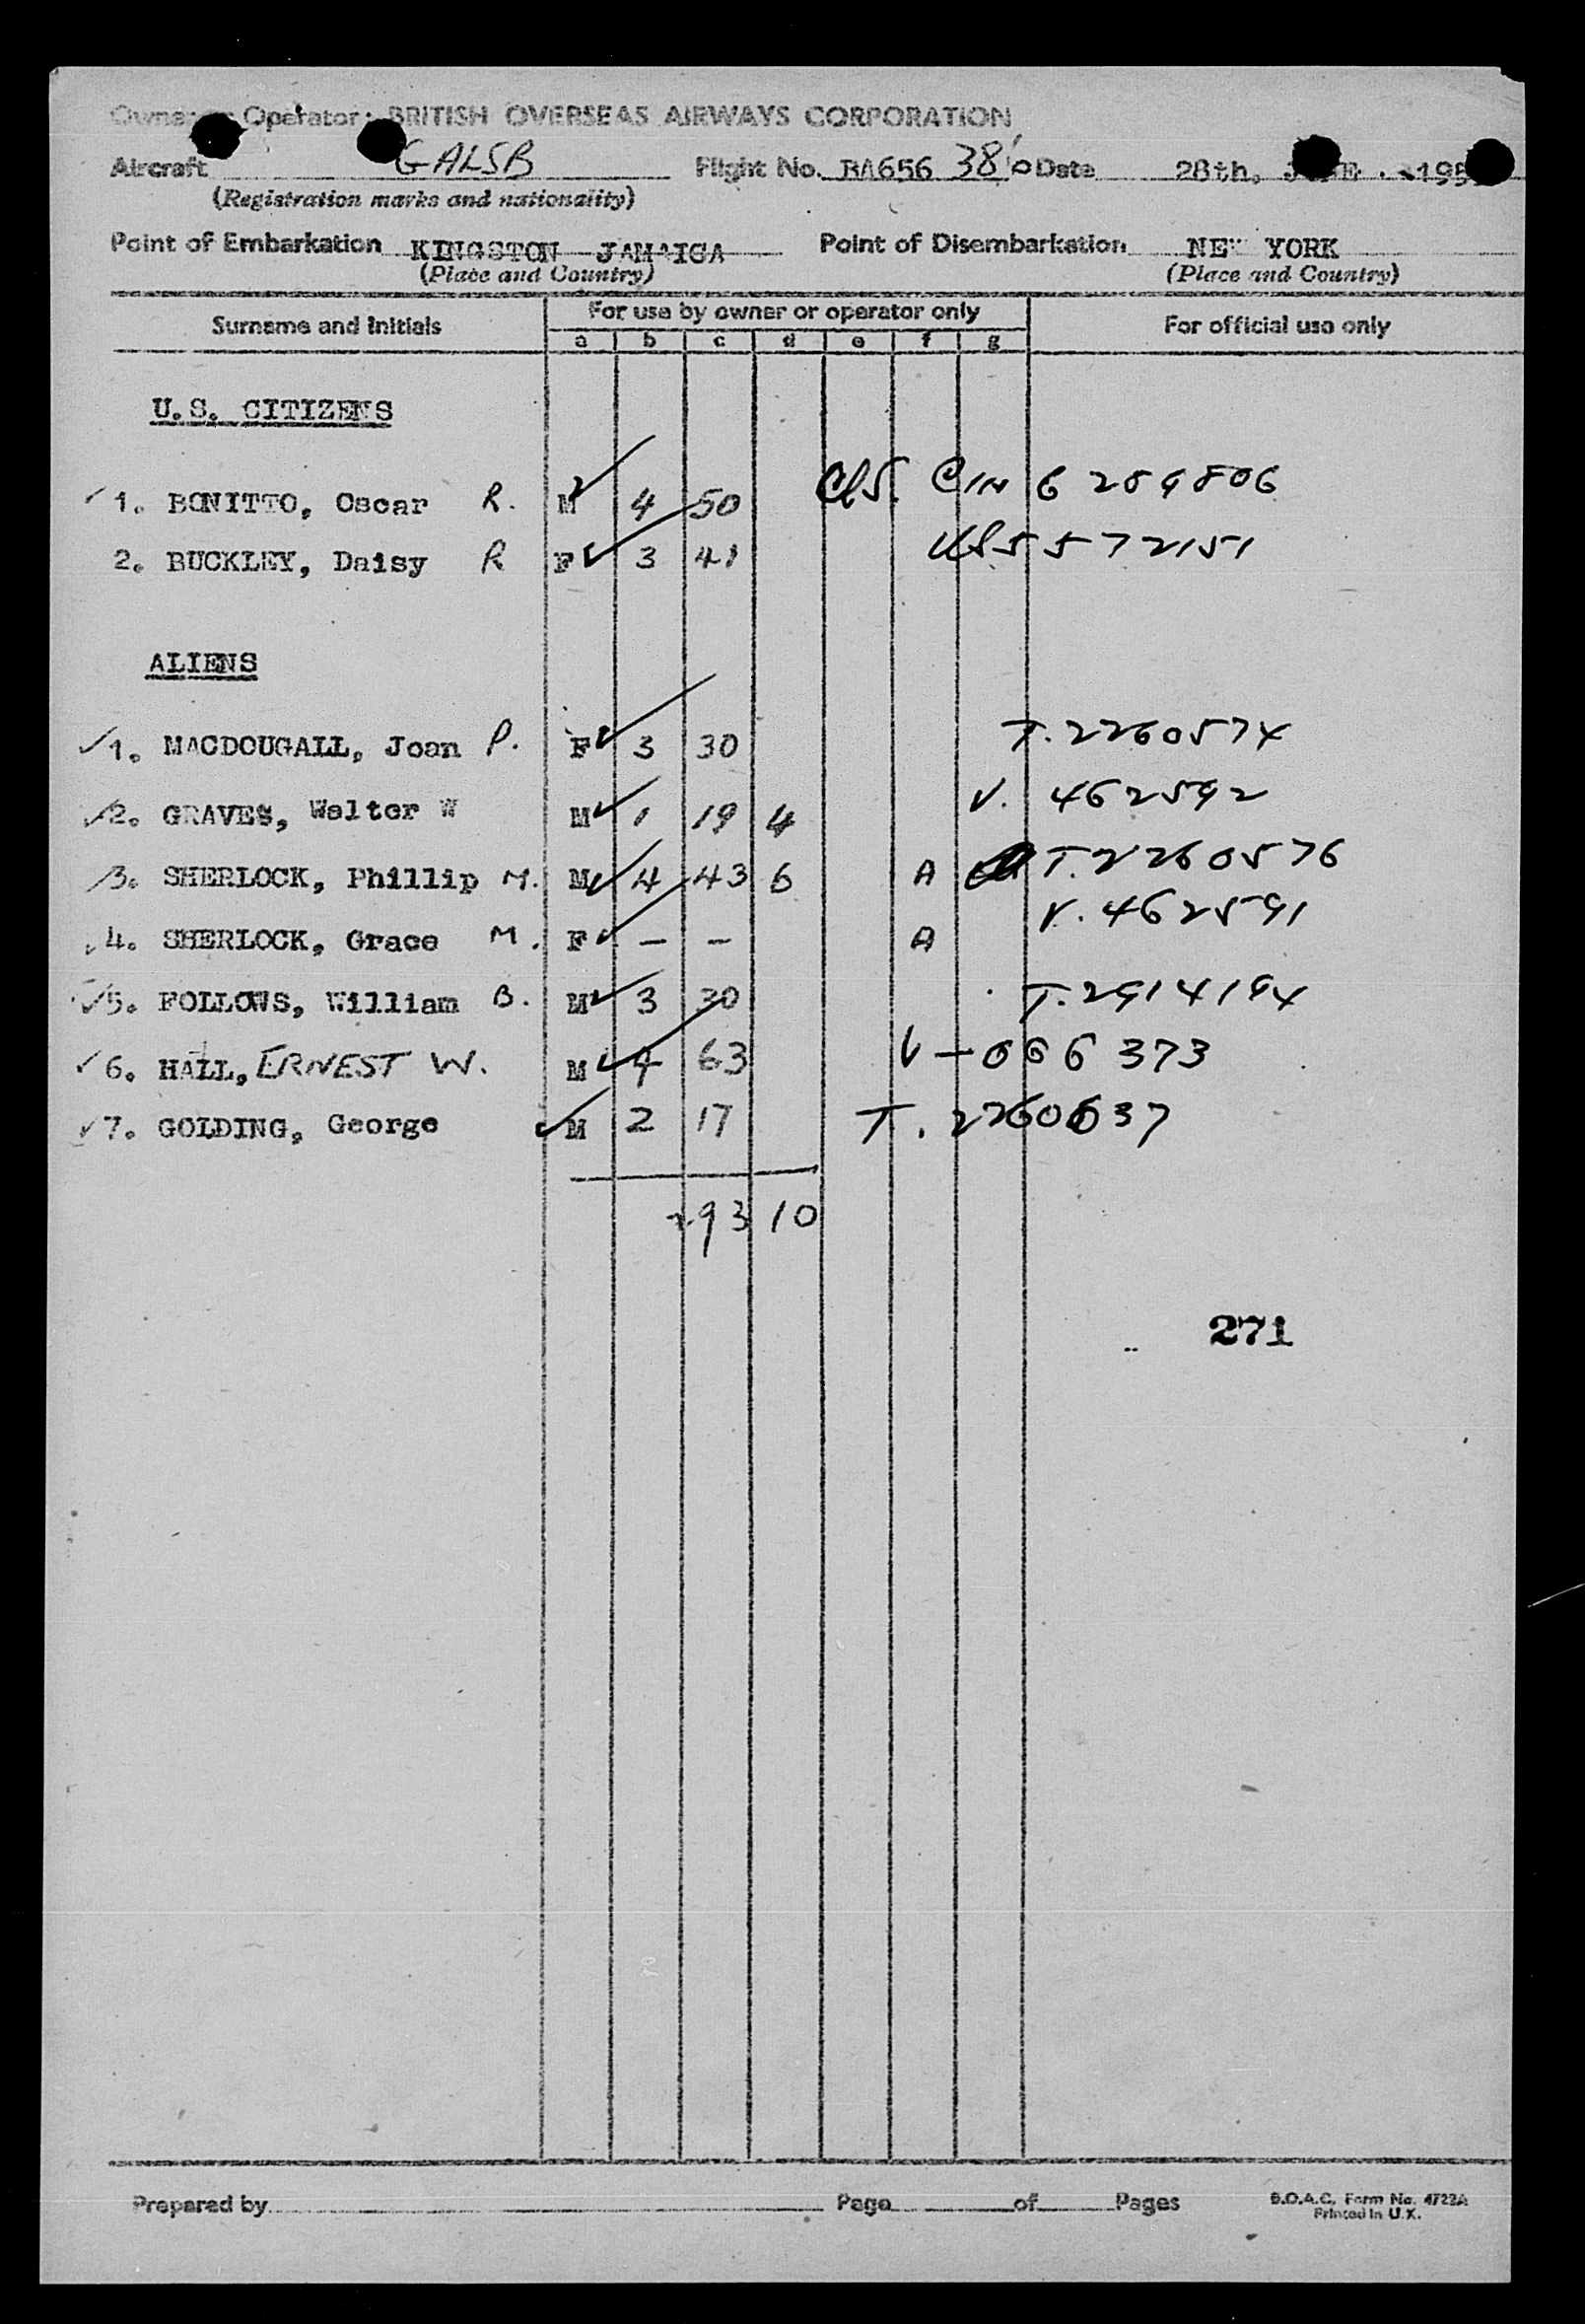 Operator: BRITISH OVERSEAS AIRWAYS CORPORATION
Aircraft GALSB Flight No. BA656 38 Date 28th,
(Registration marks and nationality)
Point of Embarkation KINGSTON JAMAICA Point of Disembarkation NEW YORK
(Place and Country) (Place and Country)
Surname and Initials For use by owner or operator only For official use only
a b c d e f g
U.S. CITIZENS
1. BONITTO, Oscar R. M 4 50 6 259806
2. BUCKLEY, Daisy R F 3 41 5572151
ALIENS
1. MACDOUGALL, Joan P. F 3 30 T. 2260574
2. GRAVES, Walter W M 1 19 4 V. 462592
3. SHERLOCK, Phillip M. M 4 43 6 A T. 2260576
4. SHERLOCK, Grace M. F — — A V. 462591
5. FOLLOWS, William B. M 3 30 T. 2914194
6. HALL, ERNEST W. M 4 63 V-066373
7. GOLDING, George M 2 17 T. 2260637
293 10
271
Prepared by Page of Pages B.O.A.C. Form No. 4722A
Printed in U.K.